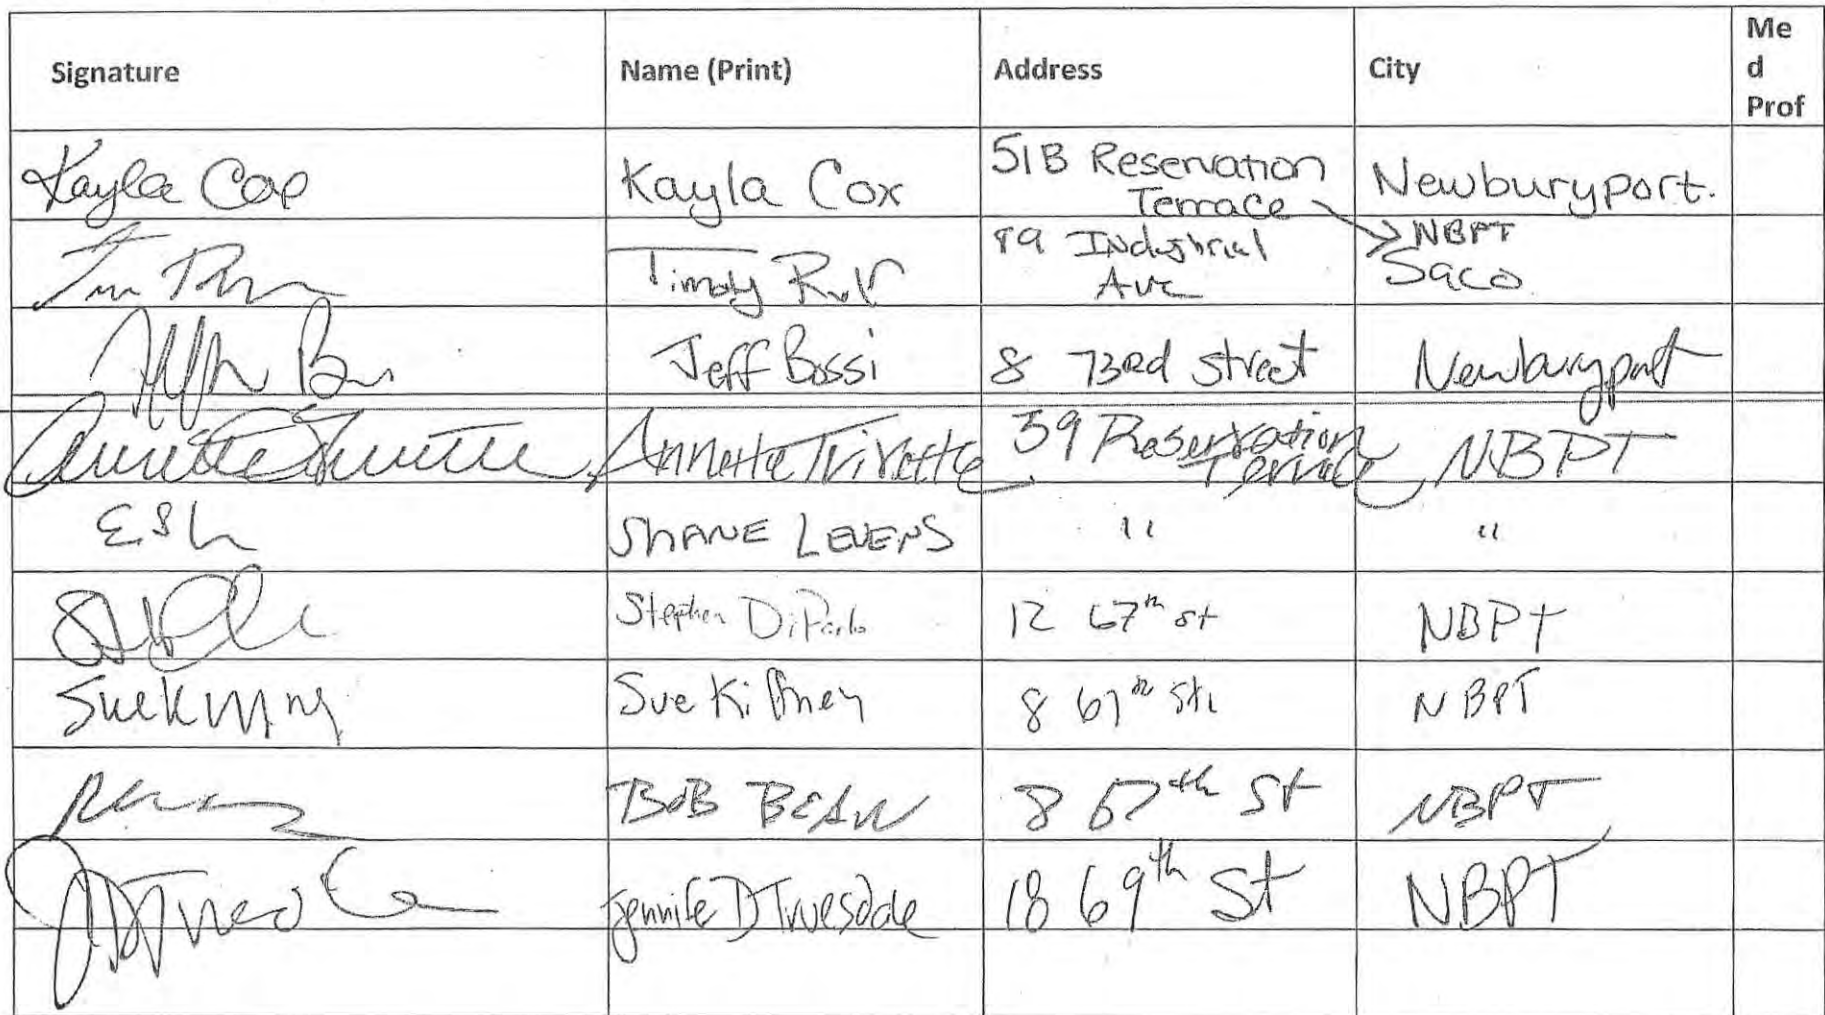 Signature Name (Print) Address City Me d Prof
Kayla Cox Kayla Cox 51B Reservation Terrace Newburyport.
Timoty 89 Industrial Ave NBPT Saco
Jeff Bossi 8 73rd street Newburyport
Annette Trivette Annette Trivette 39 Reservation Terrace NBPT
SHANE LEVENS " "
Stephen DiParlo 12 67th st NBPT
Sue Kiffney 8 67th St. NBPT
BOB BEAN 8 67th St NBPT
Jennife D Truesdale 18 69th St NBPT